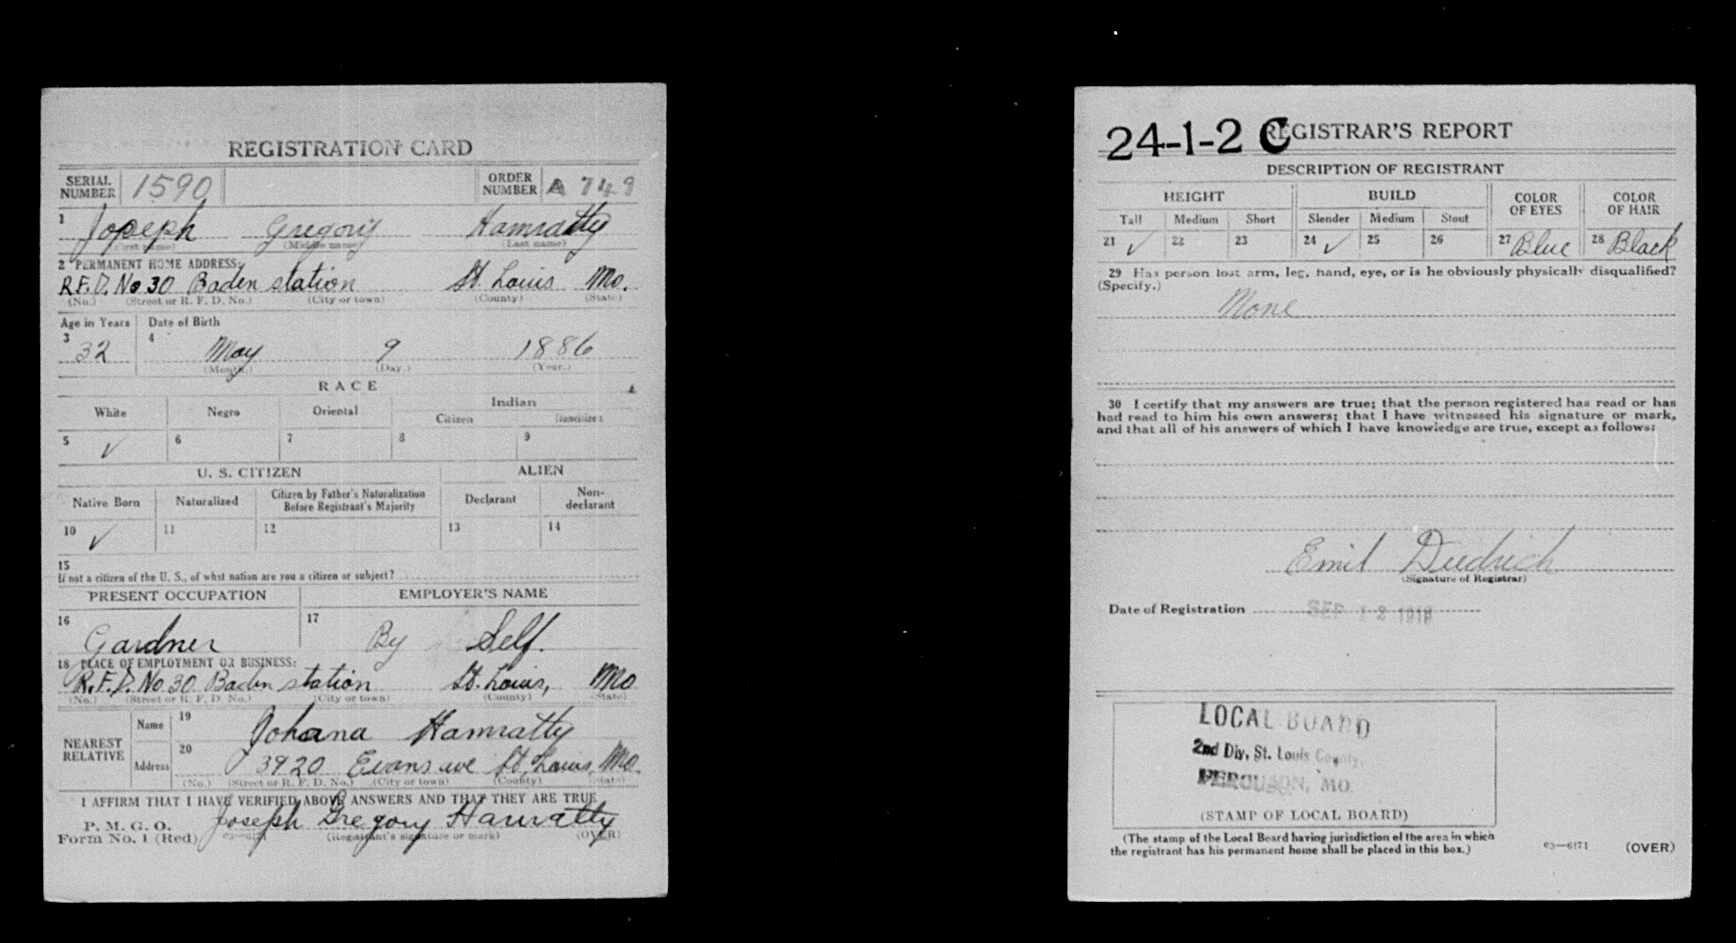 REGISTRATION CARD
SERIAL NUMBER 1590 ORDER NUMBER A 749
1 Joseph Gregory Hamratty
(First name) (Middle name) (Last name)
2 PERMANENT HOME ADDRESS:
R.F.D. No 30 Baden station St. Louis Mo.
(No.) (Street or R. F. D. No.) (City or town) (County) (State)
Age in Years Date of Birth
3 32 4 May 9 1886
(Month.) (Day.) (Year.)
RACE
White Negro Oriental Indian
Citizen Noncitizen
5 ✓ 6 7 8 9
U. S. CITIZEN ALIEN
Native Born Naturalized Citizen by Father's Naturalization Before Registrant's Majority Declarant Non-declarant
10 ✓ 11 12 13 14
15
If not a citizen of the U. S., of what nation are you a citizen or subject?
PRESENT OCCUPATION EMPLOYER'S NAME
16 Gardner 17 By Self.
18 PLACE OF EMPLOYMENT OR BUSINESS:
R.F.D. No 30 Baden station St. Louis, Mo
(No.) (Street or R. F. D. No.) (City or town) (County) (State)
NEAREST RELATIVE
Name 19 Johana Hamratty
Address 20 3920 Evans ave St. Louis, Mo.
(No.) (Street or R. F. D. No.) (City or town) (County) (State)
I AFFIRM THAT I HAVE VERIFIED ABOVE ANSWERS AND THAT THEY ARE TRUE
P. M. G. O.
Form No. 1 (Red) Joseph Gregory Hamratty
(Registrant's signature or mark) (OVER)
24-1-2 C REGISTRAR'S REPORT
DESCRIPTION OF REGISTRANT
HEIGHT BUILD COLOR OF EYES COLOR OF HAIR
Tall Medium Short Slender Medium Stout
21 ✓ 22 23 24 ✓ 25 26 27 Blue 28 Black
29 Has person lost arm, leg, hand, eye, or is he obviously physically disqualified?
(Specify.)
None
30 I certify that my answers are true; that the person registered has read or has
had read to him his own answers; that I have witnessed his signature or mark,
and that all of his answers of which I have knowledge are true, except as follows:
Emil Diedrich
(Signature of Registrar)
Date of Registration SEP 12 1918
LOCAL BOARD
2nd Div, St. Louis County,
FERGUSON, MO.
(STAMP OF LOCAL BOARD)
(The stamp of the Local Board having jurisdiction of the area in which
the registrant has his permanent home shall be placed in this box.)
03—6171 (OVER)